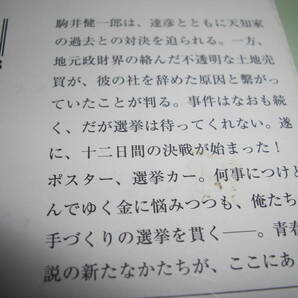 駒井健一郎は、達彦とともに天知家
の過去との対決を迫られる。一方、
地元政財界の絡んだ不透明な土地売
買が、彼の社を辞めた原因と繋がっ
ていたことが判る。事件はなおも続
く、だが選挙は待ってくれない。遂
に、十二日間の決戦が始まった！
ポスター、選挙カー。何事につけど
んでゆく金に悩みつつも、俺たち
手づくりの選挙を貫く――。青春
説の新たなかたちが、ここにあ